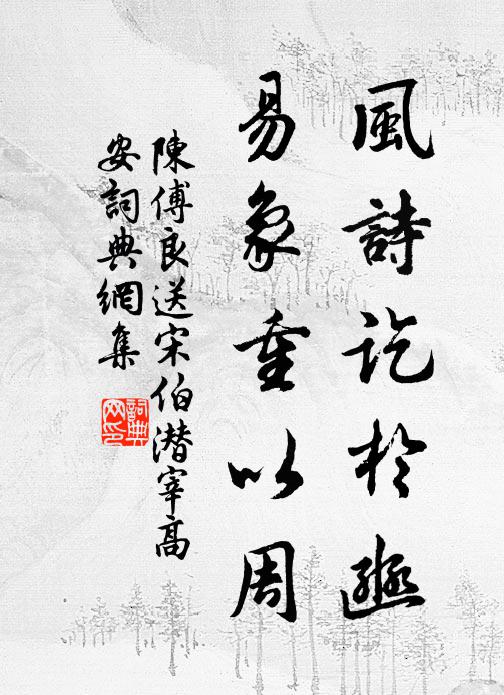 風詩訖於豳
易象重以周
陳傅良送宋伯潛宰高
安詞典網集
詞典
网印